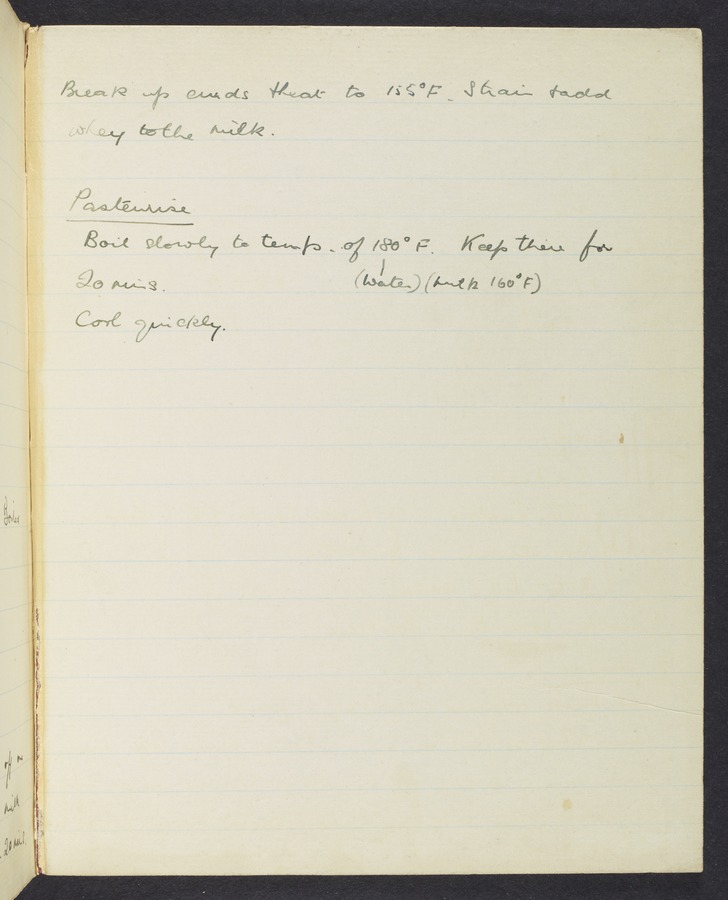 Break up curds & heat to 155°F. Strain & add
whey to the milk.
Pasteurise
Boil slowly to temp. of 180°F. Keep there for
20 mins. (Water) (milk 160°F)
Cool quickly.
off
milk
20 mins